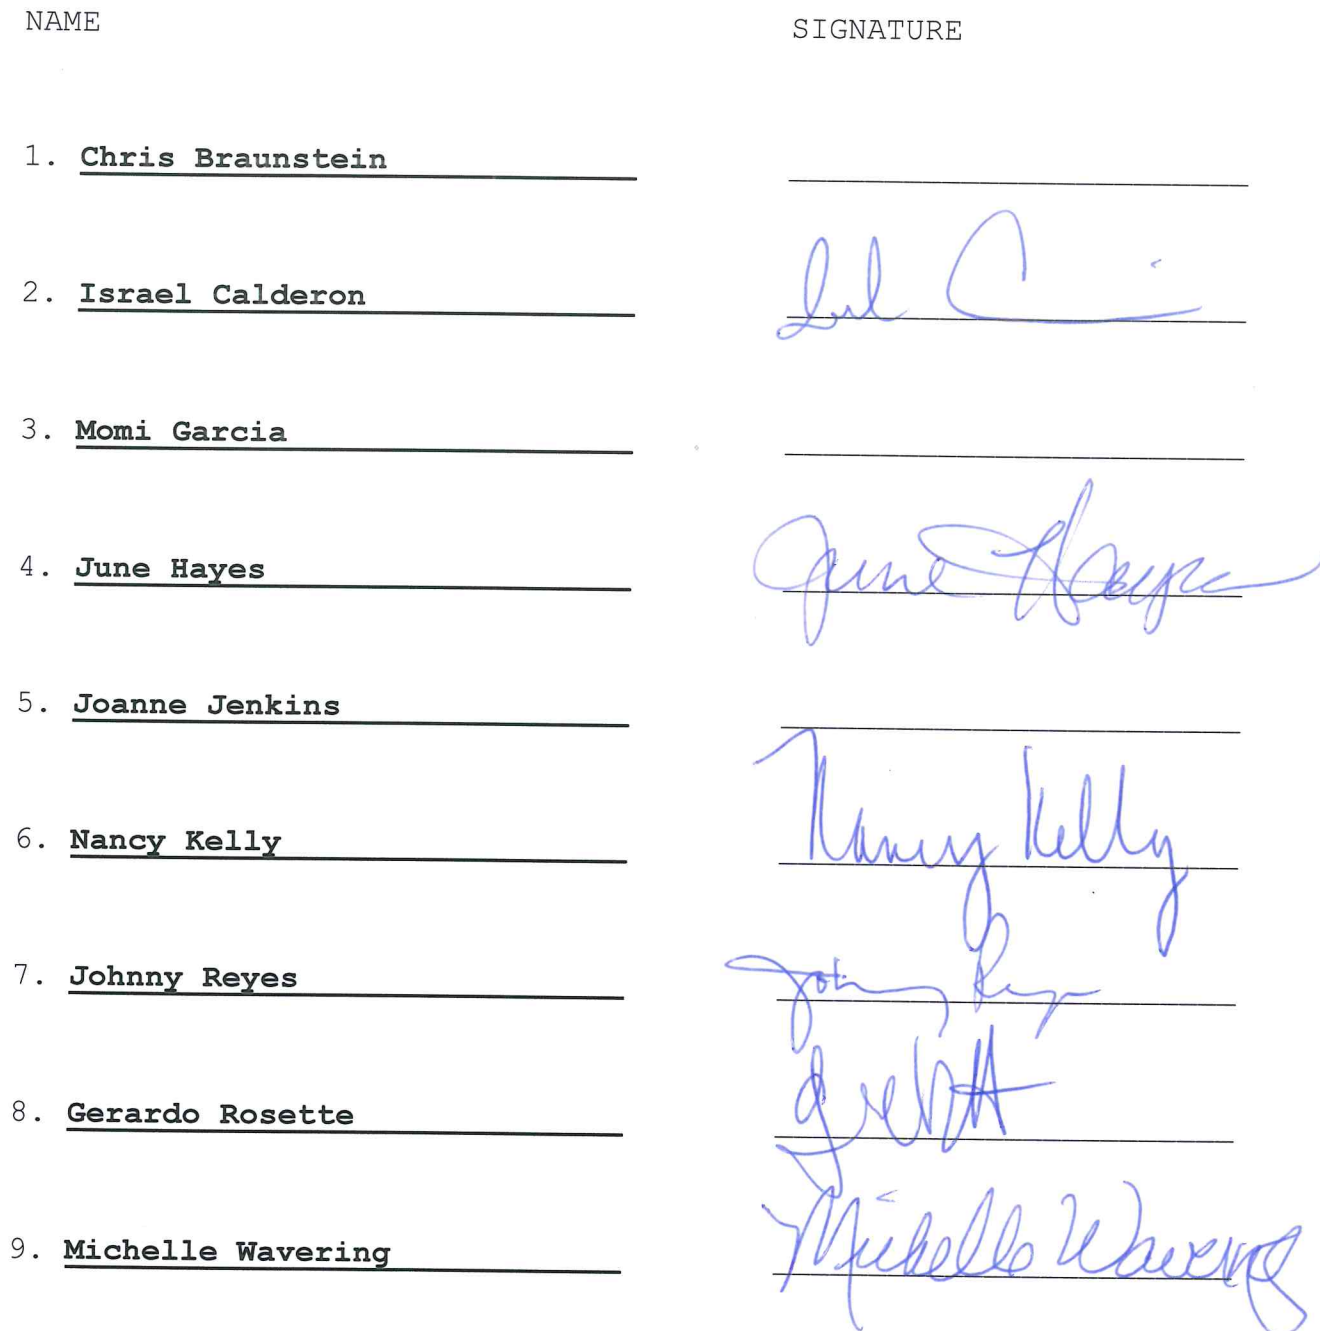 NAME SIGNATURE
1. Chris Braunstein
2. Israel Calderon
3. Momi Garcia
4. June Hayes June Hayes
5. Joanne Jenkins
6. Nancy Kelly Nancy Kelly
7. Johnny Reyes Johnny Reyes
8. Gerardo Rosette
9. Michelle Wavering Michelle Wavering